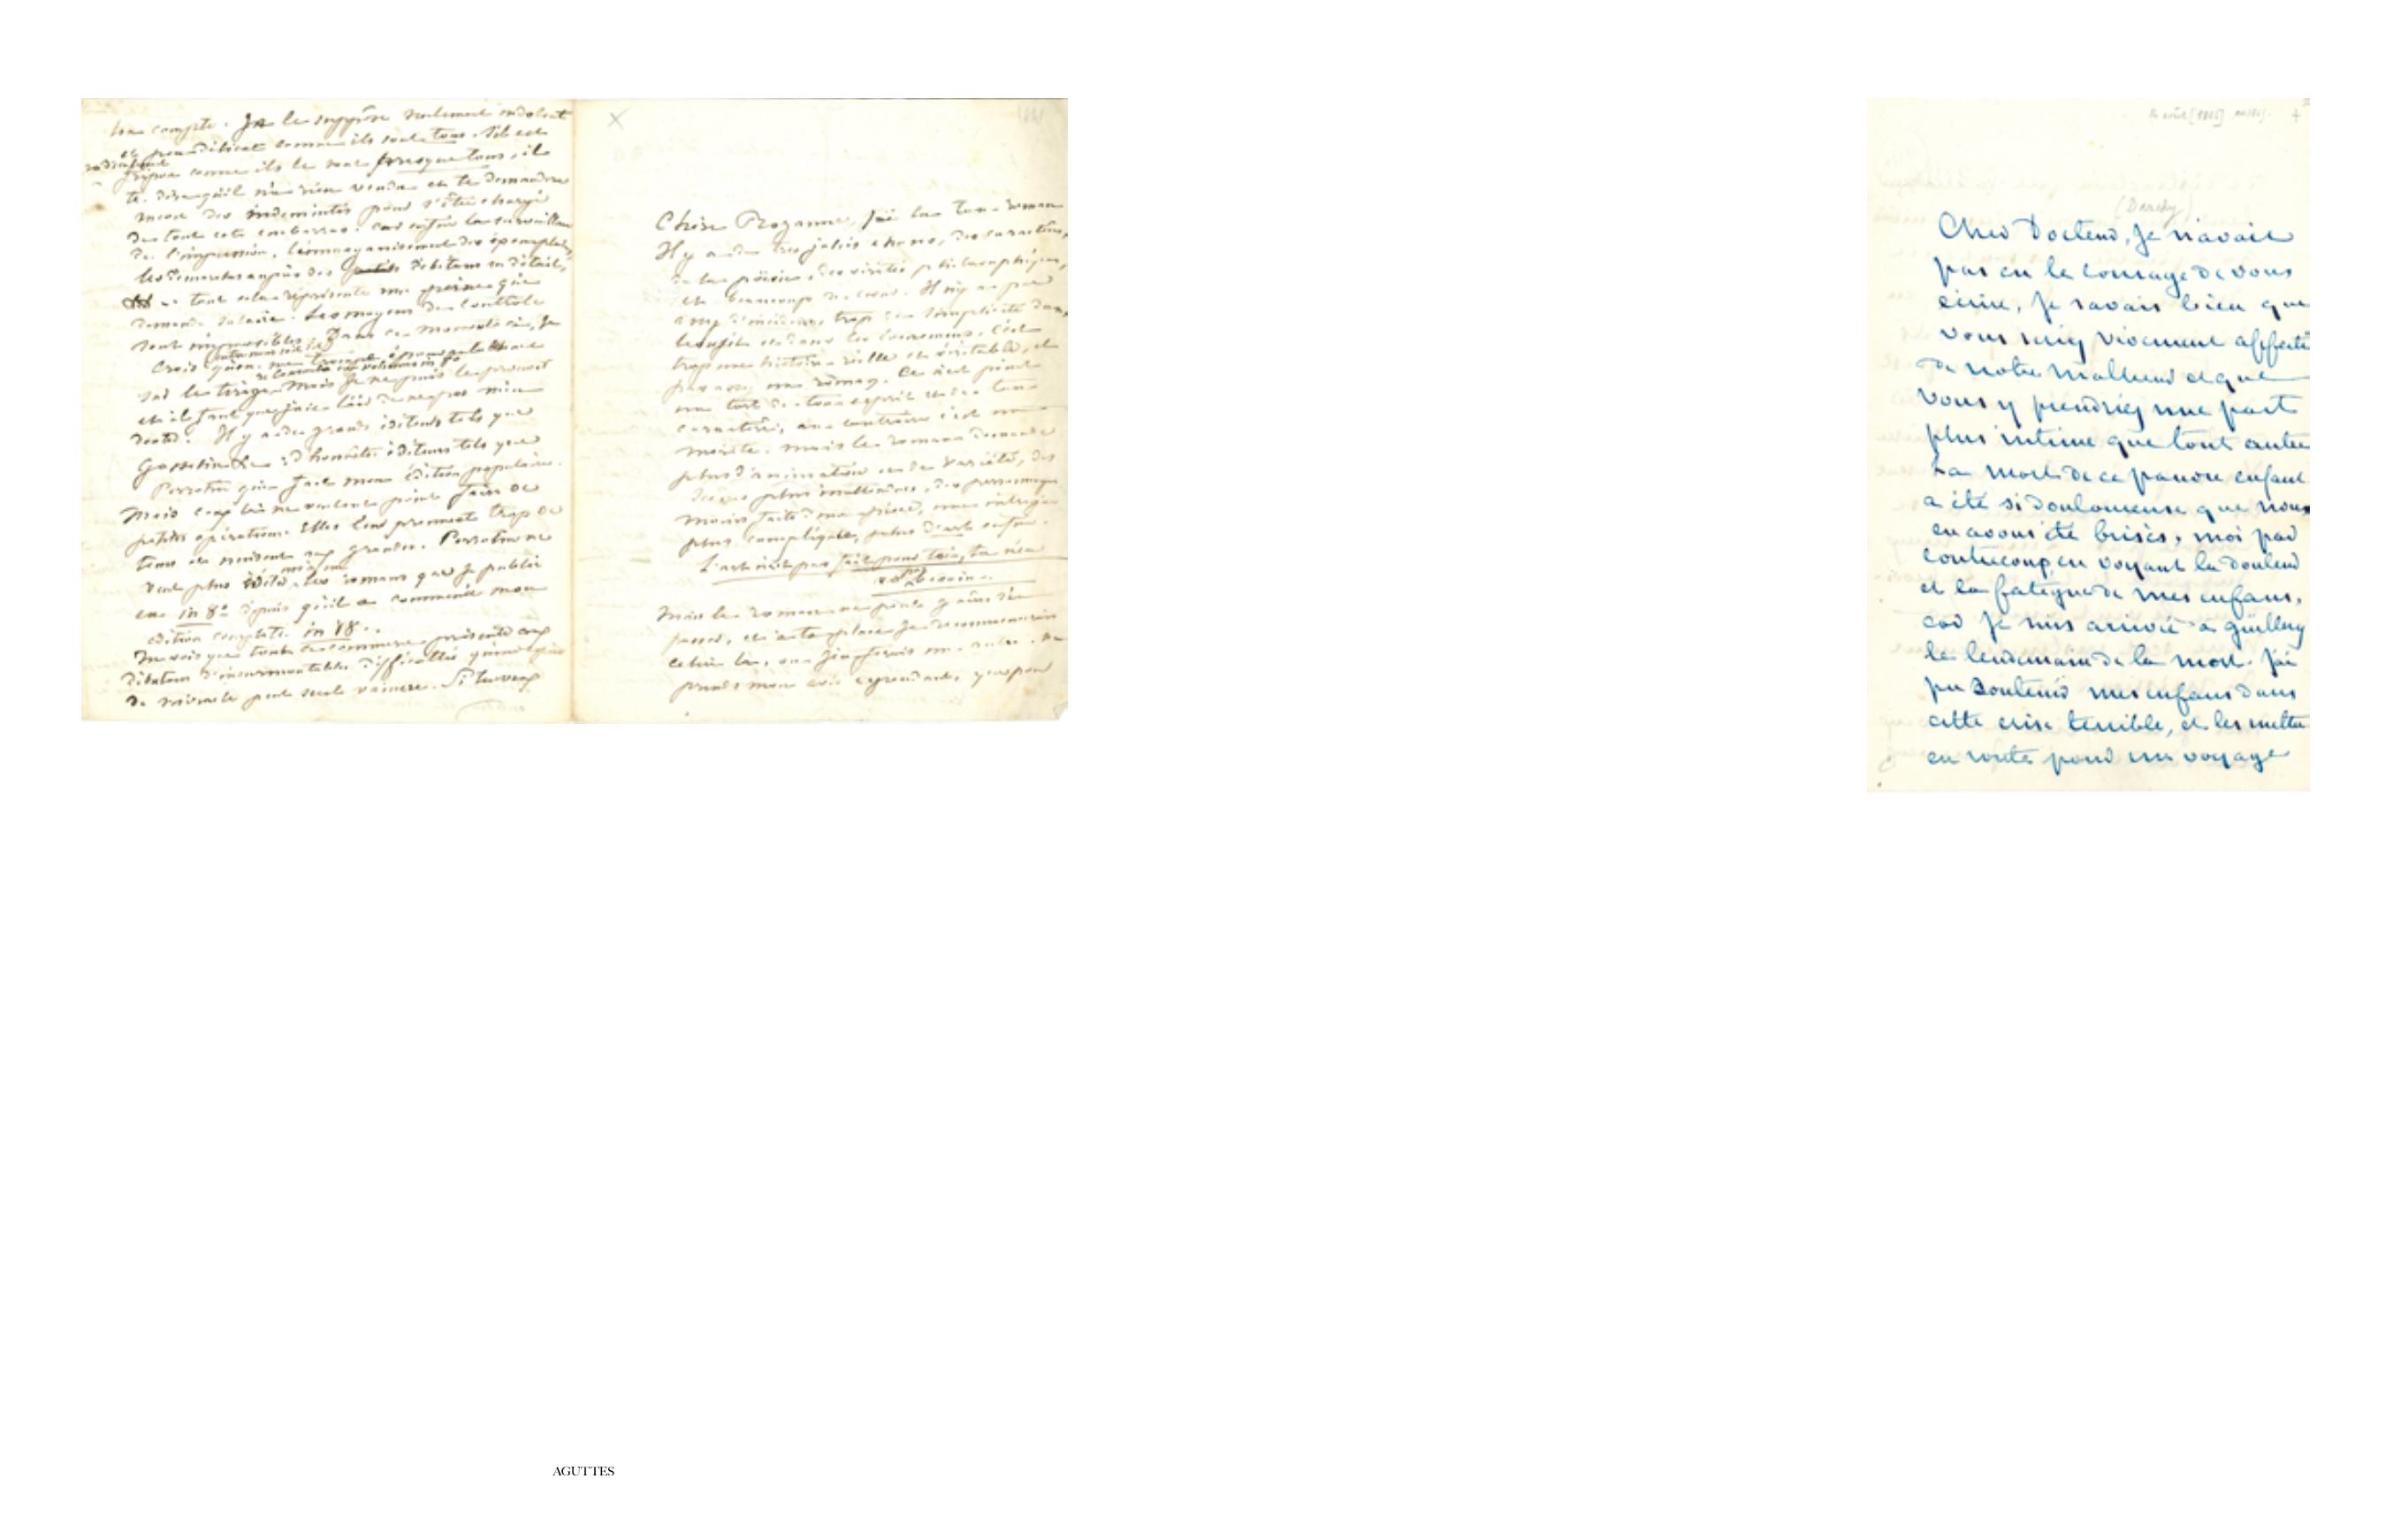 ton compte. Je le suppose seulement indolent
et peu délicat comme ils sont tous. S'il est
fripon comme ils le sont presque tous, il
te dira qu'il n'a rien vendu et te demandera
encore des indemnités pour s'être chargé
de tout cet embarras. Car enfin la surveillance
de l'impression, l'emmagasinement des exemplaires,
les démarches auprès des débitans en détail,
tout cela représente une peine qui
demande salaire. Les moyens de contrôle
sont impossibles. Dans ce moment ci, je
crois qu'on me trompe
sur le tirage. Mais je ne puis le prouver
et il faut que j'aie l'air de ne pas m'en
douter. Il y a de grands éditeurs tels que
Gosselin &c d'honnêtes éditeurs tels que
Perrotin qui fait mon édition populaire.
Mais ceux là ne veulent point faire de
petites opérations. Elles leur prennent trop de
tems et nuisent aux grandes. Perrotin ne
veut plus éditer même les romans que je publie
en in 8° depuis qu'il a commencé mon
édition complète in 18.
Tu vois que tout ce commerce présente aux
débutans d'insurmontables difficultés
de miracle peut seule vaincre. Si tu veux
X
Chère Rozanne, j'ai lu ton roman
Il y a de très jolies choses, des caractères,
de la poësie, des vérités philosophiques,
et beaucoup de cœur. Il n'y a pas
assez d'incidens, trop de simplicité dans
le sujet et dans les évènemens. C'est
trop une histoire réelle et véritable, et
pas assez un roman. Ce n'est point
un tort de ton esprit et de ton
caractère, au contraire c'est un
mérite. Mais le roman demande
plus d'animation et de variété, des
scènes plus inattendues, des personnages
moins faits d'une pièce, une intrigue
plus compliquée, plus d'art enfin.
L'art n'est pas fait pour toi, tu n'en
as pas besoin.
Mais le roman ne peut guères s'en
passer, et à ta place je recommencerais
celui là, ou j'en ferais un autre. Ne
prends mon avis cependant, que pour
(Darchy)
Cher Docteur, je n'avais
pas eu le courage de vous
écrire, je savais bien que
vous seriez vivement affecté
de notre malheur et que
vous y prendriez une part
plus intime que tout autre
La mort de ce pauvre enfant
a été si douloureuse que nous
en avons été brisés, moi par
contrecoup, en voyant la douleur
et la fatigue de mes enfans,
car je suis arrivée à Guillery
le lendemain de la mort. J'ai
pu soutenir mes enfans dans
cette crise terrible, et les mettre
en route pour un voyage
AGUTTES